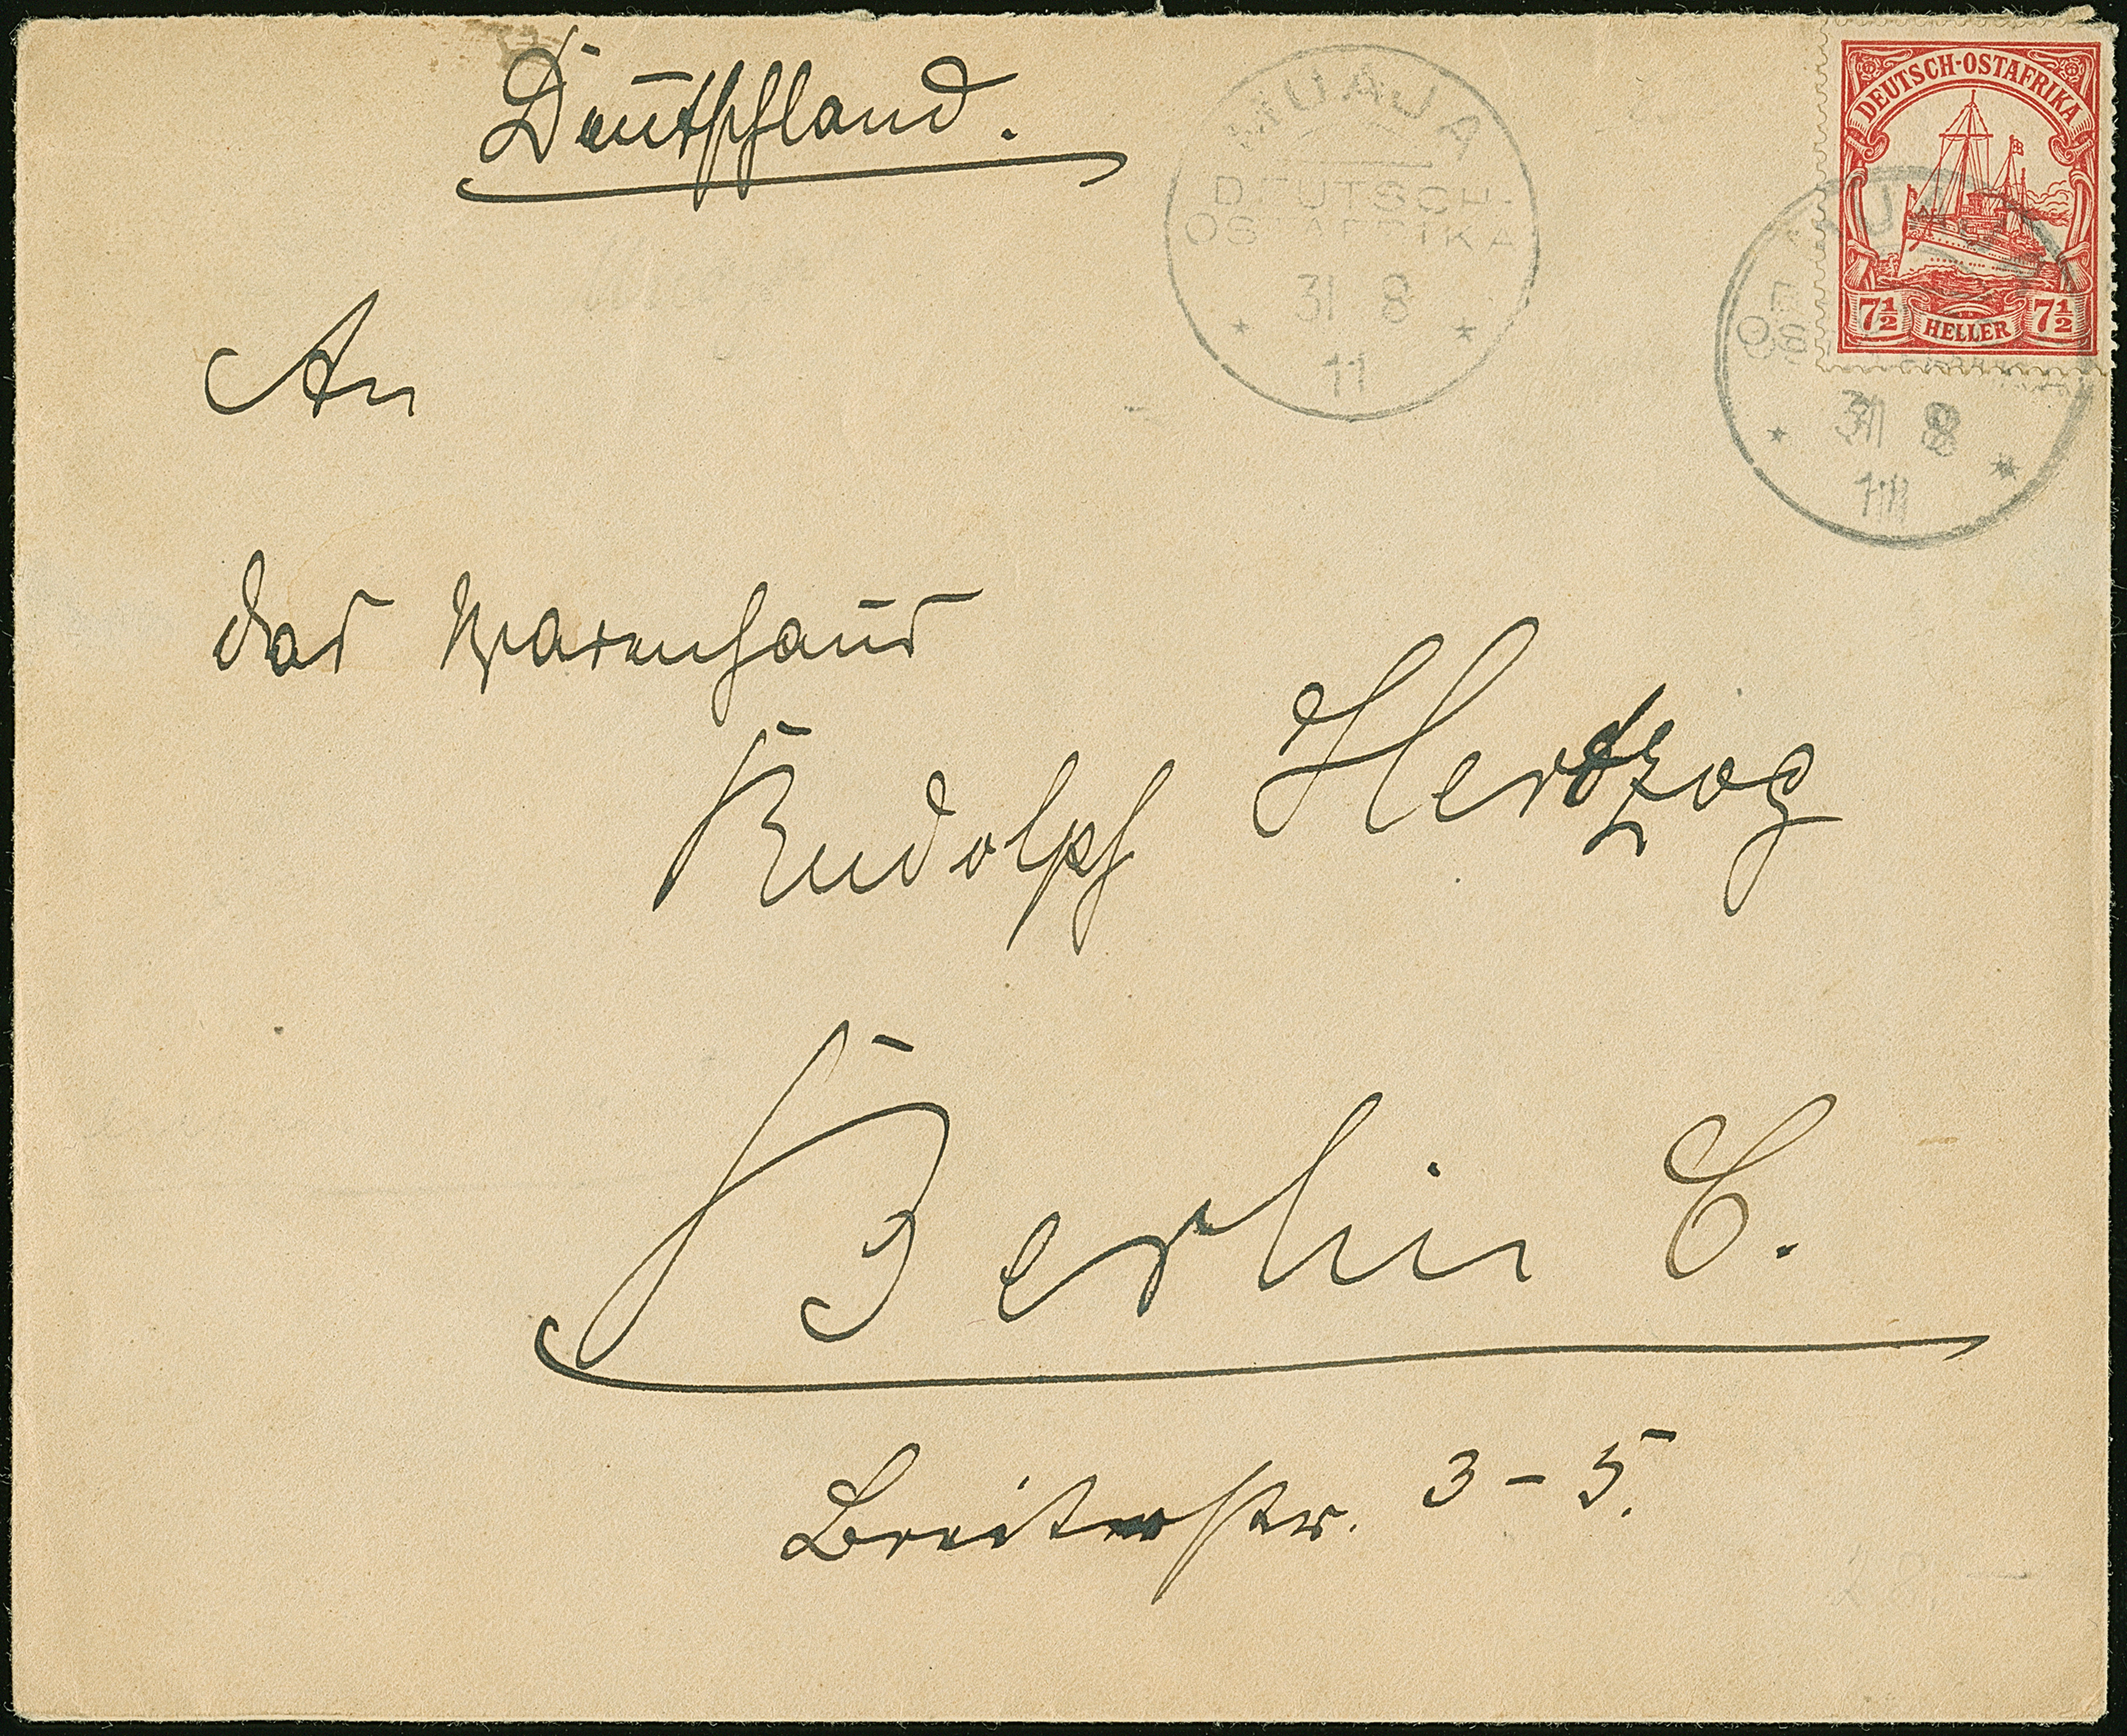 Deutschland.
MUAJA
DEUTSCH-
OSTAFRIKA
31 8
11
DEUTSCH-OSTAFRIKA
7½ HELLER 7½
31 8
11
An
das Warenhaus
Rudolph Hertzog
Berlin C.
Breitestr. 3-5.